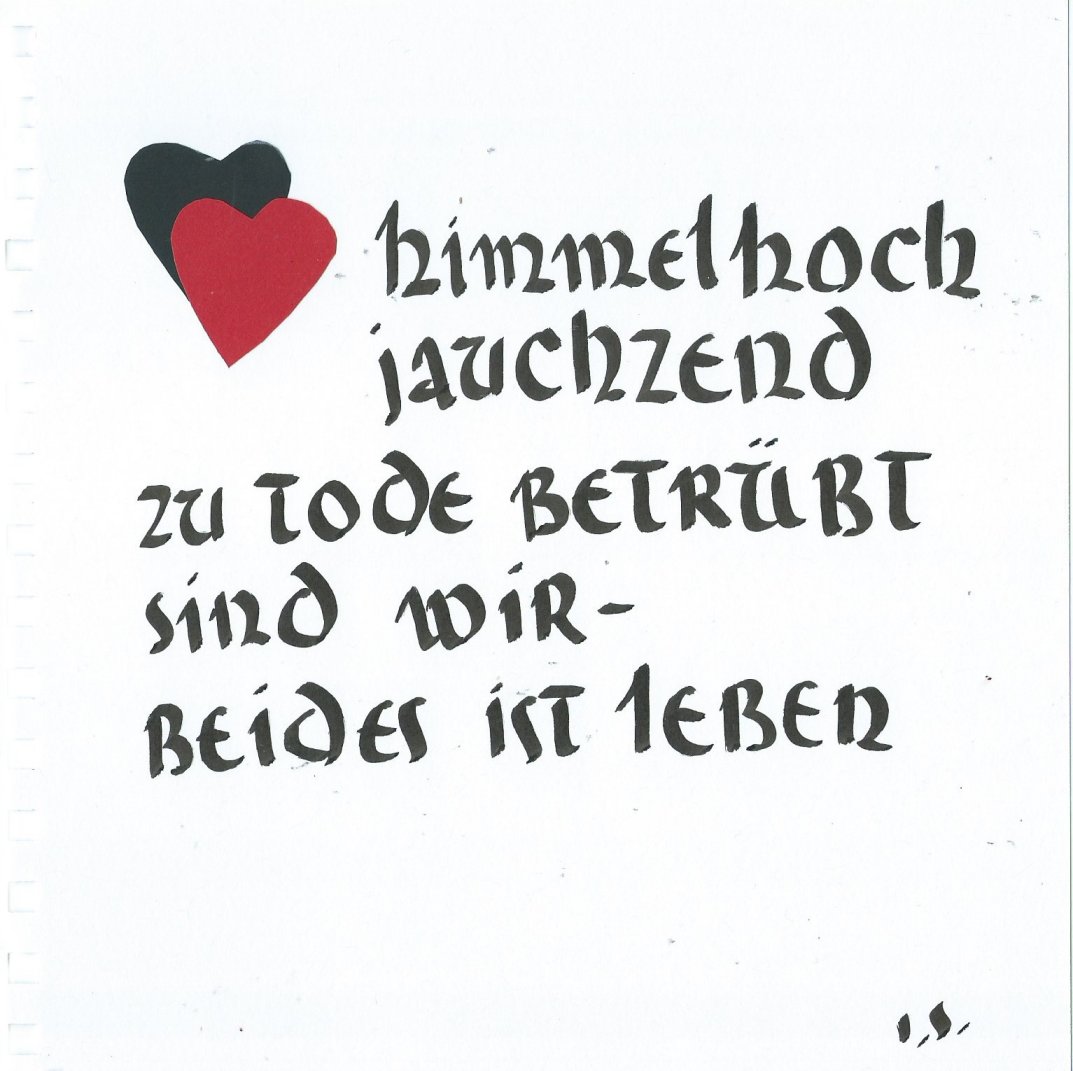 himmelhoch
jauchzend
zu tode betrübt
sind wir -
beides ist leben
i.s.